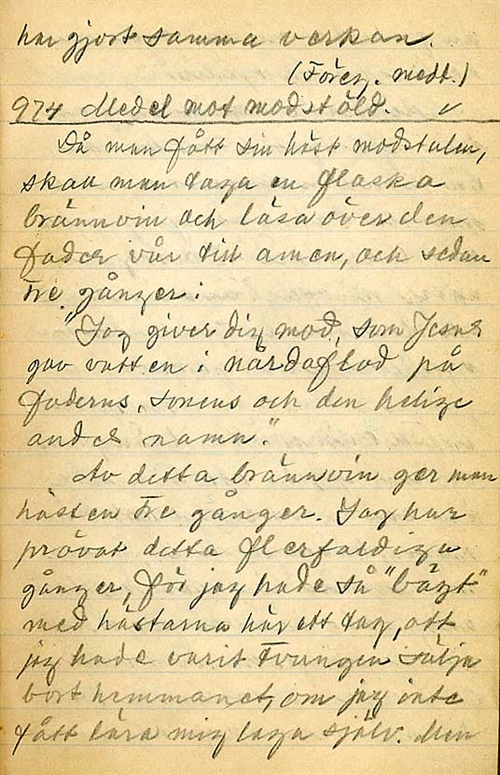 har gjort samma verkan.
(Föreg. medt.)
974 Medel mot modstöld.
Då man fått sin häst modstulen,
skall man taga en flaska
brännvin och läsa över den
fader vår till amen, och sedan
tre gånger:
"Jag giver dig mod, som Jesus
gav vatten i nårdaflod på
faderns, sonens och den helige
andes namn".
Av detta brännvin ger man
hästen tre gånger. Jag har
prövat detta flerfaldiga
gånger, för jag hade så "bågt"
med hästarna här ett tag, att
jag hade varit tvungen sälja
bort hemmanet, om jag inte
fått lära mig laga själv. Men